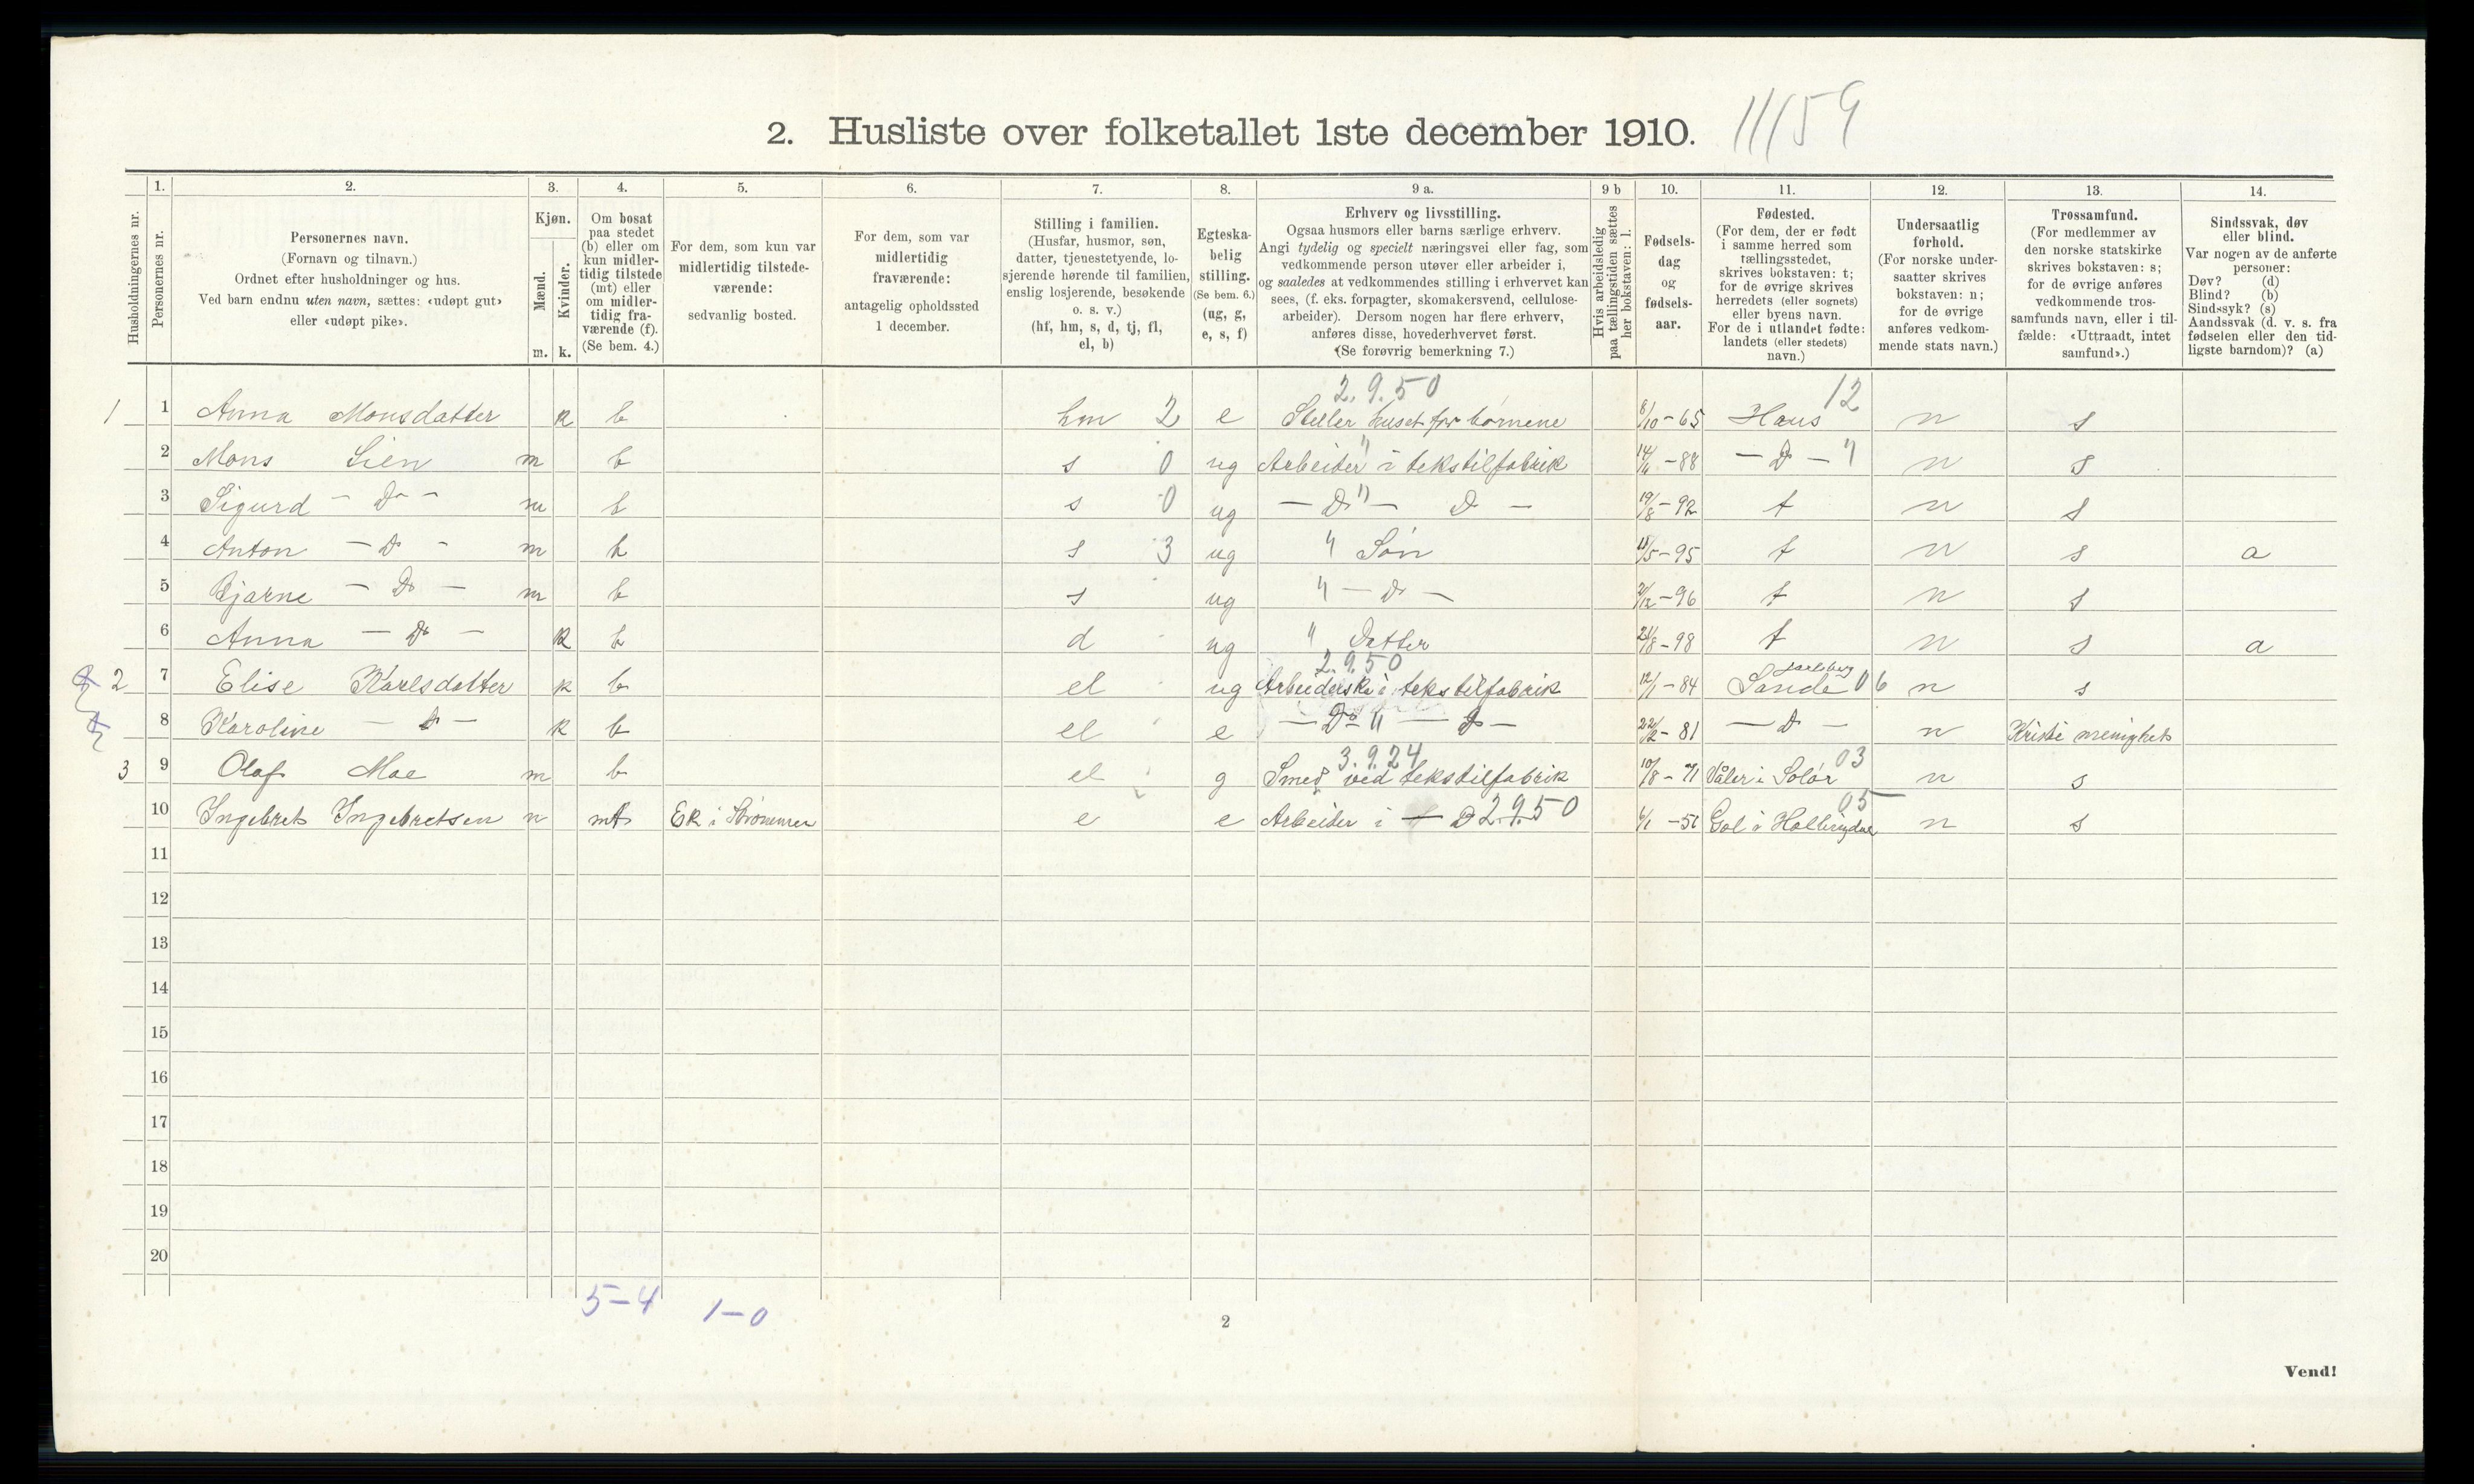 2. Husliste over folketallet 1ste december 1910. 11/59
1. 2. 3. 4. 5. 6. 7. 8. 9 a. 9 b 10. 11. 12. 13. 14.
Husholdningernes nr.
Personernes nr.
Personernes navn.
(Fornavn og tilnavn.)
Ordnet efter husholdninger og hus.
Ved barn endnu uten navn, sættes: «udøpt gut»
eller «udøpt pike».
Kjøn.
Mænd.
Kvinder.
m. k.
Om bosat
paa stedet
(b) eller om
kun midler-
tidig tilstede
(mt) eller
om midler-
tidig fra-
værende (f).
(Se bem. 4.)
For dem, som kun var
midlertidig tilstede-
værende:
sedvanlig bosted.
For dem, som var
midlertidig
fraværende:
antagelig opholdssted
1 december.
Stilling i familien.
(Husfar, husmor, søn,
datter, tjenestetyende, lo-
sjerende hørende til familien,
enslig losjerende, besøkende
o. s. v.)
(hf, hm, s, d, tj, fl,
el, b)
Egteska-
belig
stilling.
(Se bem. 6.)
(ug, g,
e, s, f)
Erhverv og livsstilling.
Ogsaa husmors eller barns særlige erhverv.
Angi tydelig og specielt næringsvei eller fag, som
vedkommende person utøver eller arbeider i,
og saaledes at vedkommendes stilling i erhvervet kan
sees, (f. eks. forpagter, skomakersvend, cellulose-
arbeider). Dersom nogen har flere erhverv,
anføres disse, hovederhvervet først.
(Se forøvrig bemerkning 7.)
Hvis arbeidsledig
paa tællingstiden sættes
her bokstaven: l.
Fødsels-
dag
og
fødsels-
aar.
Fødested.
(For dem, der er født
i samme herred som
tællingsstedet,
skrives bokstaven: t;
for de øvrige skrives
herredets (eller sognets)
eller byens navn.
For de i utlandet fødte:
landets (eller stedets)
navn.)
Undersaatlig
forhold.
(For norske under-
saatter skrives
bokstaven: n;
for de øvrige
anføres vedkom-
mende stats navn.)
Trossamfund.
(For medlemmer av
den norske statskirke
skrives bokstaven: s;
for de øvrige anføres
vedkommende tros-
samfunds navn, eller i til-
fælde: «Uttraadt, intet
samfund».)
Sindssvak, døv
eller blind.
Var nogen av de anførte
personer:
Døv? (d)
Blind? (b)
Sindssyk? (s)
Aandssvak (d. v. s. fra
fødselen eller den tid-
ligste barndom)? (a)
2.9.50 12
1 1 Anna Monsdatter k b hm 2 e Steller huset for børnene 8/10 - 65 Haus n s
2 Mons Lien m b s 0 ug Arbeider i tekstilfabrik - 88 - D - " n s
3 Sigurd - Do - m b s 0 ug - D " - D - 19/8 - 92 t n s
4 Anton - D - m b s 3 ug " Søn - 95 t n s a
5 Bjarne - Do - m b s ug " - D - - 96 t n s
6 Anna - Do - k b d ug " Datter - 98 t n s a
2.9.50 Jarlsberg
2 7 Elise Karlsdatter k b el ug Arbeiderske i tekstilfabrik 12/1 - 84 Sande 06 n s
8 Karoline - D - k b el e - Do " - D - 22/2 - 81 - D - n Kristi menighet
3.9.24 03
3 9 Olaf Moe m b el g Smed ved tekstilfabrik 10/8 - 71 Våler i Solør n s
05
10 Ingebret Ingebretsen m mt Ek i Strømmen e e Arbeider i - D 2.9.50 Gol i Hallingdal n s
11
12
13
14
15
16
17
18
19
20
5-4 1-0
2
Vend!